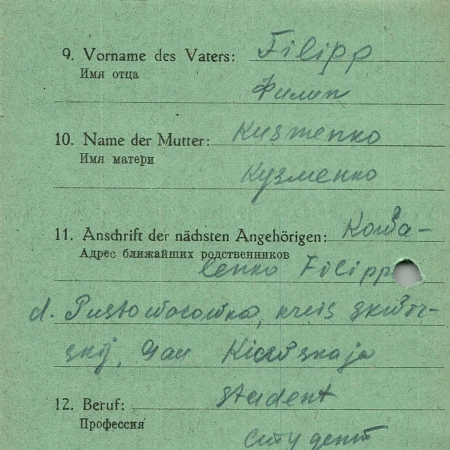 9. Vorname des Vaters: Filipp
Имя отца
Филип
10. Name der Mutter: Kusmenko
Имя матери
Кузменко
11. Anschrift der nächsten Angehörigen: Kowa-
Адрес ближайших родственников
lenko Filipp
d. Pustoworowka, kreis skwir-
skij, Gau Kiewskaja
12. Beruf: student
Профессия
студент